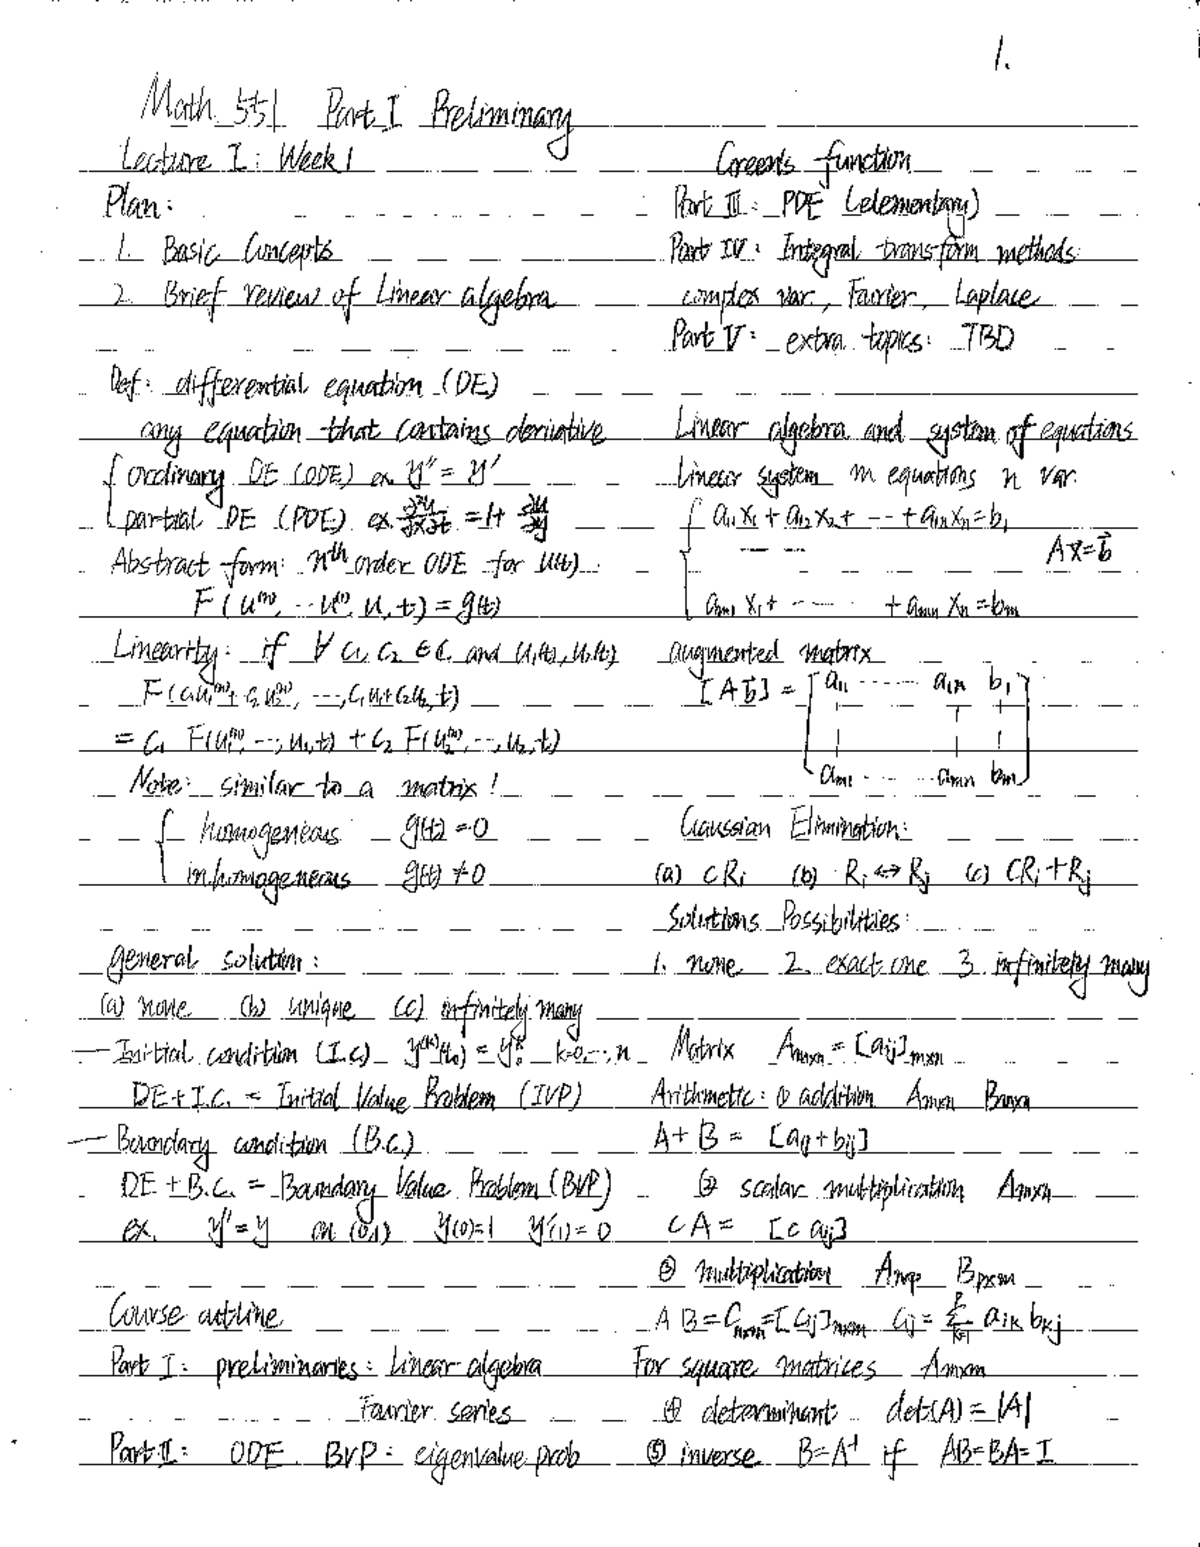 1.
Math 551 Part I Preliminary
Lecture I: Week 1
Plan:
1. Basic Concepts
2. Brief review of Linear algebra
Def: differential equation (DE)
any equation that contains derivative
{ ordinary DE (ODE) ex y'' = y'
partial DE (PDE) ex ∂²u/∂x∂t = 1+ ∂u/∂y
Abstract form: nth order ODE for u(t)
F(u^(n), ... u^(1), u, t) = g(t)
Linearity: if ∀ c1, c2 ∈ C and u1(t), u2(t)
F(c1u1^(n) + c2u2^(n), ..., c1u1+c2u2, t)
= c1 F(u1^(n), ..., u1, t) + c2 F(u2^(n), ..., u2, t)
Note: similar to a matrix!
{ homogeneous g(t) = 0
inhomogeneous g(t) ≠ 0
general solution:
(a) none (b) unique (c) infinitely many
— Initial condition (I.C) y^(k)(t0) = y0^k k=0,...,n
DE + I.C. = Initial Value Problem (IVP)
— Boundary condition (B.C.)
DE + B.C. = Boundary Value Problem (BVP)
ex. y'' = y on (0,1) y(0)=1 y'(1) = 0
Course outline
Part I: preliminaries: Linear algebra
Fourier series
Part II: ODE BVP: eigenvalue prob
Green's function
Part III: PDE (elementary)
Part IV: Integral transform methods:
complex var., Fourier, Laplace
Part V: extra topics: TBD
Linear algebra and system of equations
Linear system m equations n var.
{ a11 x1 + a12 x2 + --- + a1n xn = b1
---- Ax = b⃗
am1 x1 + ---- + amn xn = bm
augmented matrix
[A b⃗] = [ a11 ------ a1n b1
am1 ---- amn bm ]
Gaussian Elimination:
(a) cRi (b) Ri ↔ Rj (c) CRi + Rj
Solutions Possibilities:
1. none 2. exact one 3. infinitely many
Matrix Amxn = [aij]mxn
Arithmetic: ① addition Amxn Bmxn
A + B = [aij + bij]
② scalar multiplication Amxn
cA = [c aij]
③ multiplication Anxp Bpxm
AB = Cnxm = [Cij]nxm Cij = Σ_{k=1}^{p} aik bkj
For square matrices Amxm
④ determinant det(A) = |A|
⑤ inverse B = A⁻¹ if AB = BA = I